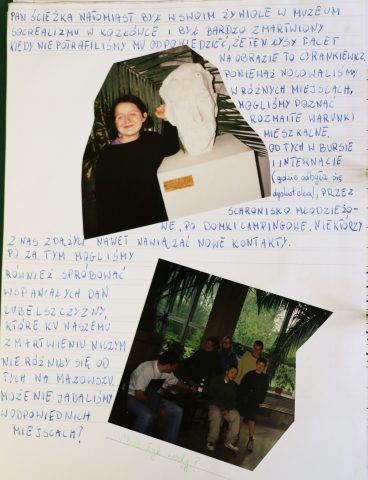 PAN ŚCIEŻKA NATOMIAST BYŁ W SWOIM ŻYWIOLE W MUZEUM
SOCREALIZMU W KOZŁÓWCE I BYŁ BARDZO ZMARTWIONY
KIEDY NIE POTRAFILIŚMY MU ODPOWIEDZIEĆ, ŻE TEN ŁYSY FACET
NA OBRAZIE TO CYRANKIEWICZ.
PONIEWAŻ NOCOWALIŚMY
W RÓŻNYCH MIEJSCACH,
MOGLIŚMY POZNAĆ
ROZMAITE WARUNKI
MIESZKALNE.
OD TYCH W BURSIE
I INTERNACIE
(gdzie odbyła się
dyskoteka), PRZEZ
SCHRONISKO MŁODZIEŻO-
WE, PO DOMKI CAMPINGOWE. NIEKTÓRZY
Z NAS ZDĄŻYLI NAWET NAWIĄZAĆ NOWE KONTAKTY.
POZA TYM MOGLIŚMY
RÓWNIEŻ SPRÓBOWAĆ
WSPANIAŁYCH DAŃ
LUBELSZCZYZNY,
KTÓRE KU NASZEMU
ZMARTWIENIU NICZYM
NIE RÓŻNIŁY SIĘ OD
TYCH NA MAZOWSZU.
MOŻE NIE JADALIŚMY
W ODPOWIEDNICH
MIEJSCACH?